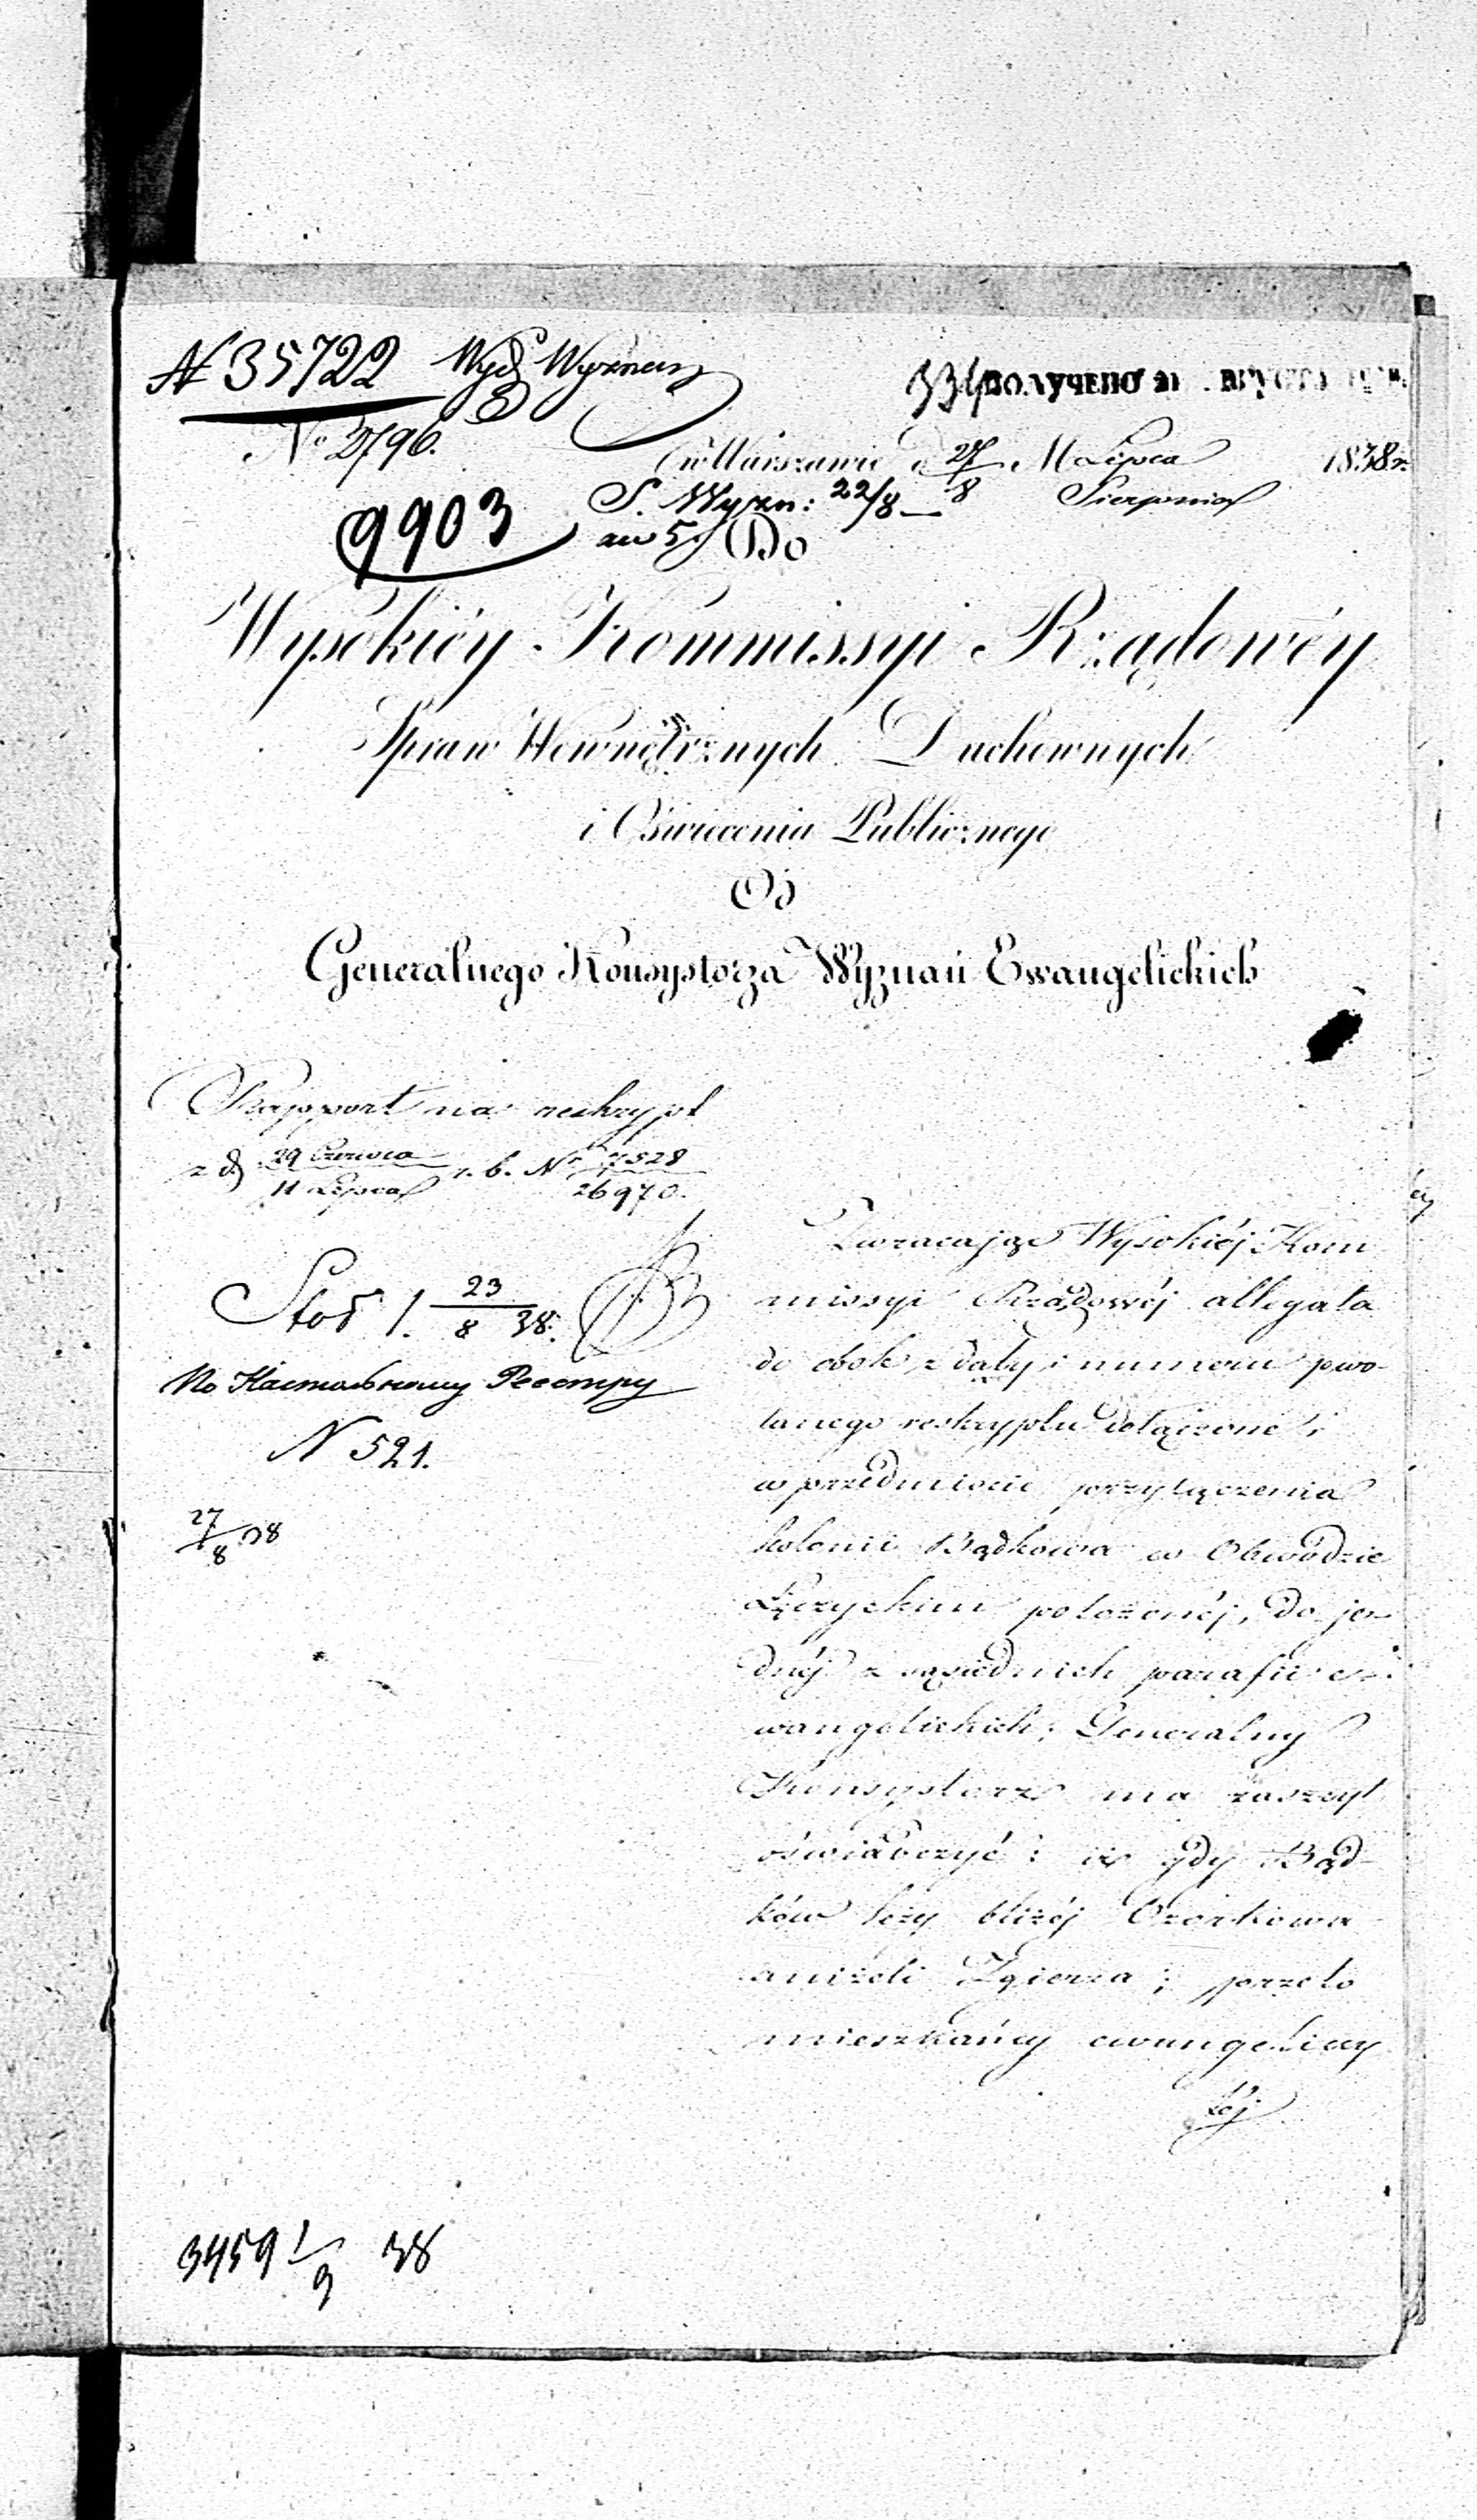 № 35722 Wydź Wyznań
334 ПОЛУЧЕНО 21 АВГУСТА
No 2796.
w Warszawie d 27/8 M Lipca / Sierpnia 1838 r.
9903
S. Wyzn: 22/8
Do
Wysokiéy Kommissyi Rządowéy
Spraw Wewnętrznych Duchownych
i Oświecenia Publicznego
Od
Generalnego Konsystorza Wyznań Ewangelickich
Rapport na reskrypt
z d. 29 Czerwca / 11 Lipca r. b. Nr 7528 / 26970.
Stoł 1. 23/8 38.
По Настольному Реестру
N 521.
27/8 38
Zwracając Wysokiéj Kom
missyi Rządowéj allegata
do obok z daty i numeru powo-
łanego reskryptu dołączone i
w przedmiocie przyłączenia
kolonii Bądkowa w Obwodzie
Łęczyckim położonéj, do je-
dnéj z sąsiednich parafii e-
wangelickich; Generalny
Konsystorz ma zaszczyt
oświadczyć: iż gdy Bąd-
ków leży bliżéj Ozorkowa
aniżeli Zgierza; przeto
mieszkańcy ewangeliccy
téj
3459 1/9 38